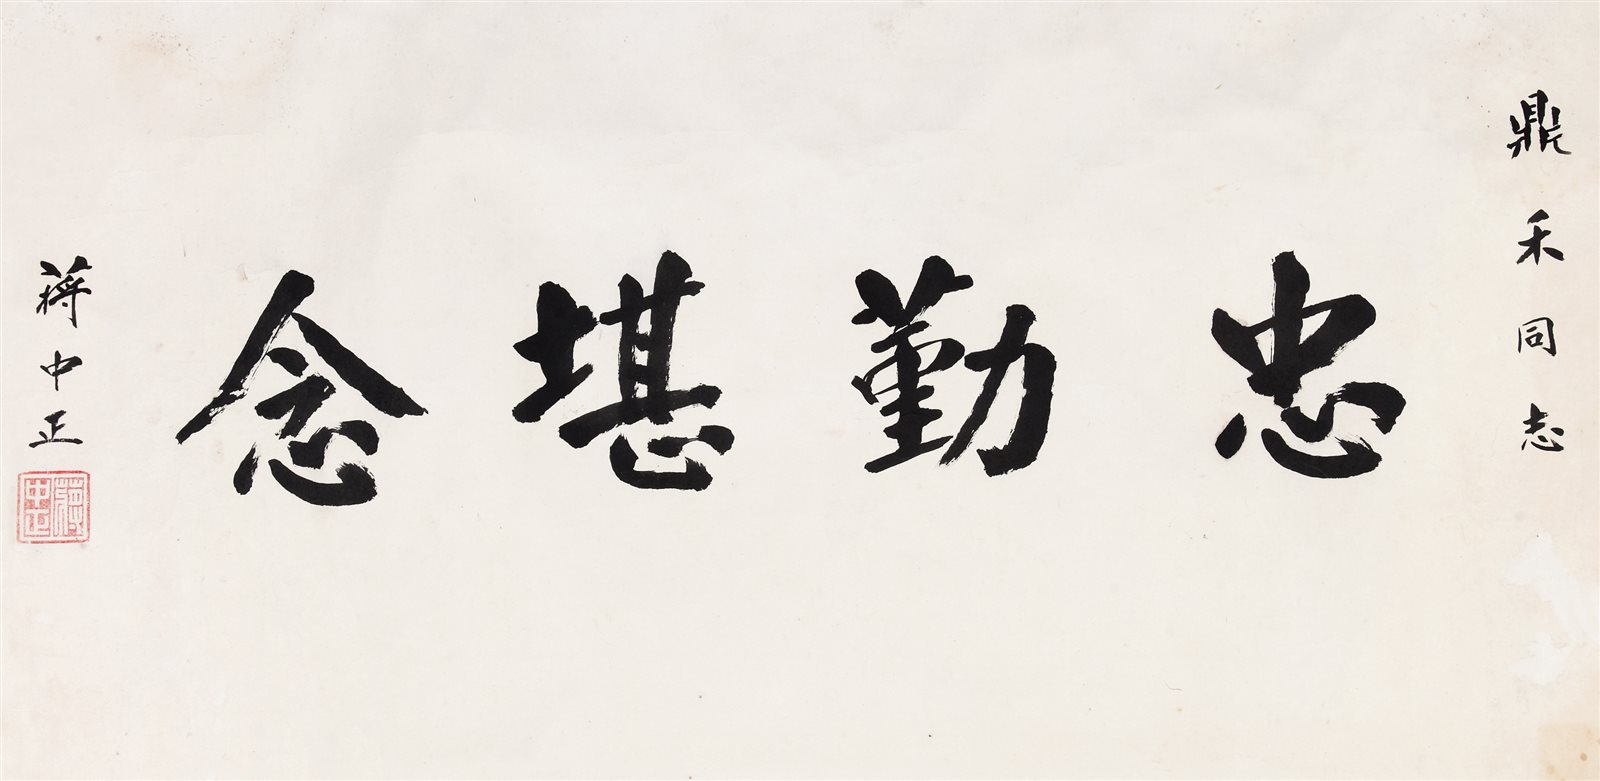 鼎禾同志
忠勤堪念
蔣中正
蔣中正